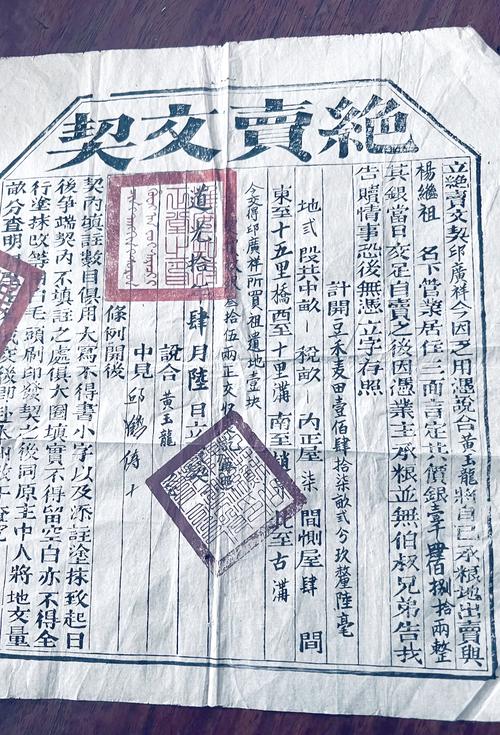 絶賣文契
立絶賣文契邱廣祥今因乏用憑說合黃玉龍將自己承糧地出賣與
楊繼祖　名下管業居住三面言定比價銀壹千肆佰捌拾兩整
其銀當日交足自賣之後因憑業主承糧並無伯叔兄弟告找
告贖情事恐後無憑立字存照
計開豆禾麦田壹佰肆拾柒畝貳分玖釐陸毫
地貳段共中畝－稅畝－內正屋柒間惻屋肆間
東至十五里橋西至十里溝南至
北至古溝
今交得邱廣祥所買祖遺地壹塊
叁拾伍兩正交
道光拾
肆月陸日立契
說合黃玉龍
中見
十
條例開後
契內填註數目俱用大寫不得書小字以及添註塗抹致起日
後争端契內不填註之處俱大圈填實不得留空白亦不得全
行塗抹改
白毛頭刷印發契之後同原主中人將地丈量
畝分查明